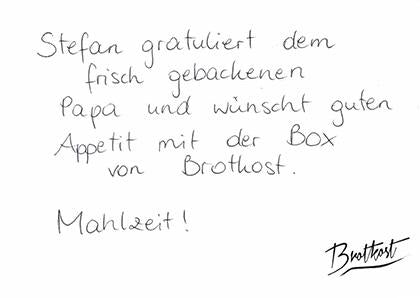 Stefan gratuliert dem
frisch gebackenen
Papa und wünscht guten
Appetit mit der Box
von Brotkost.
Mahlzeit!
Brotkost